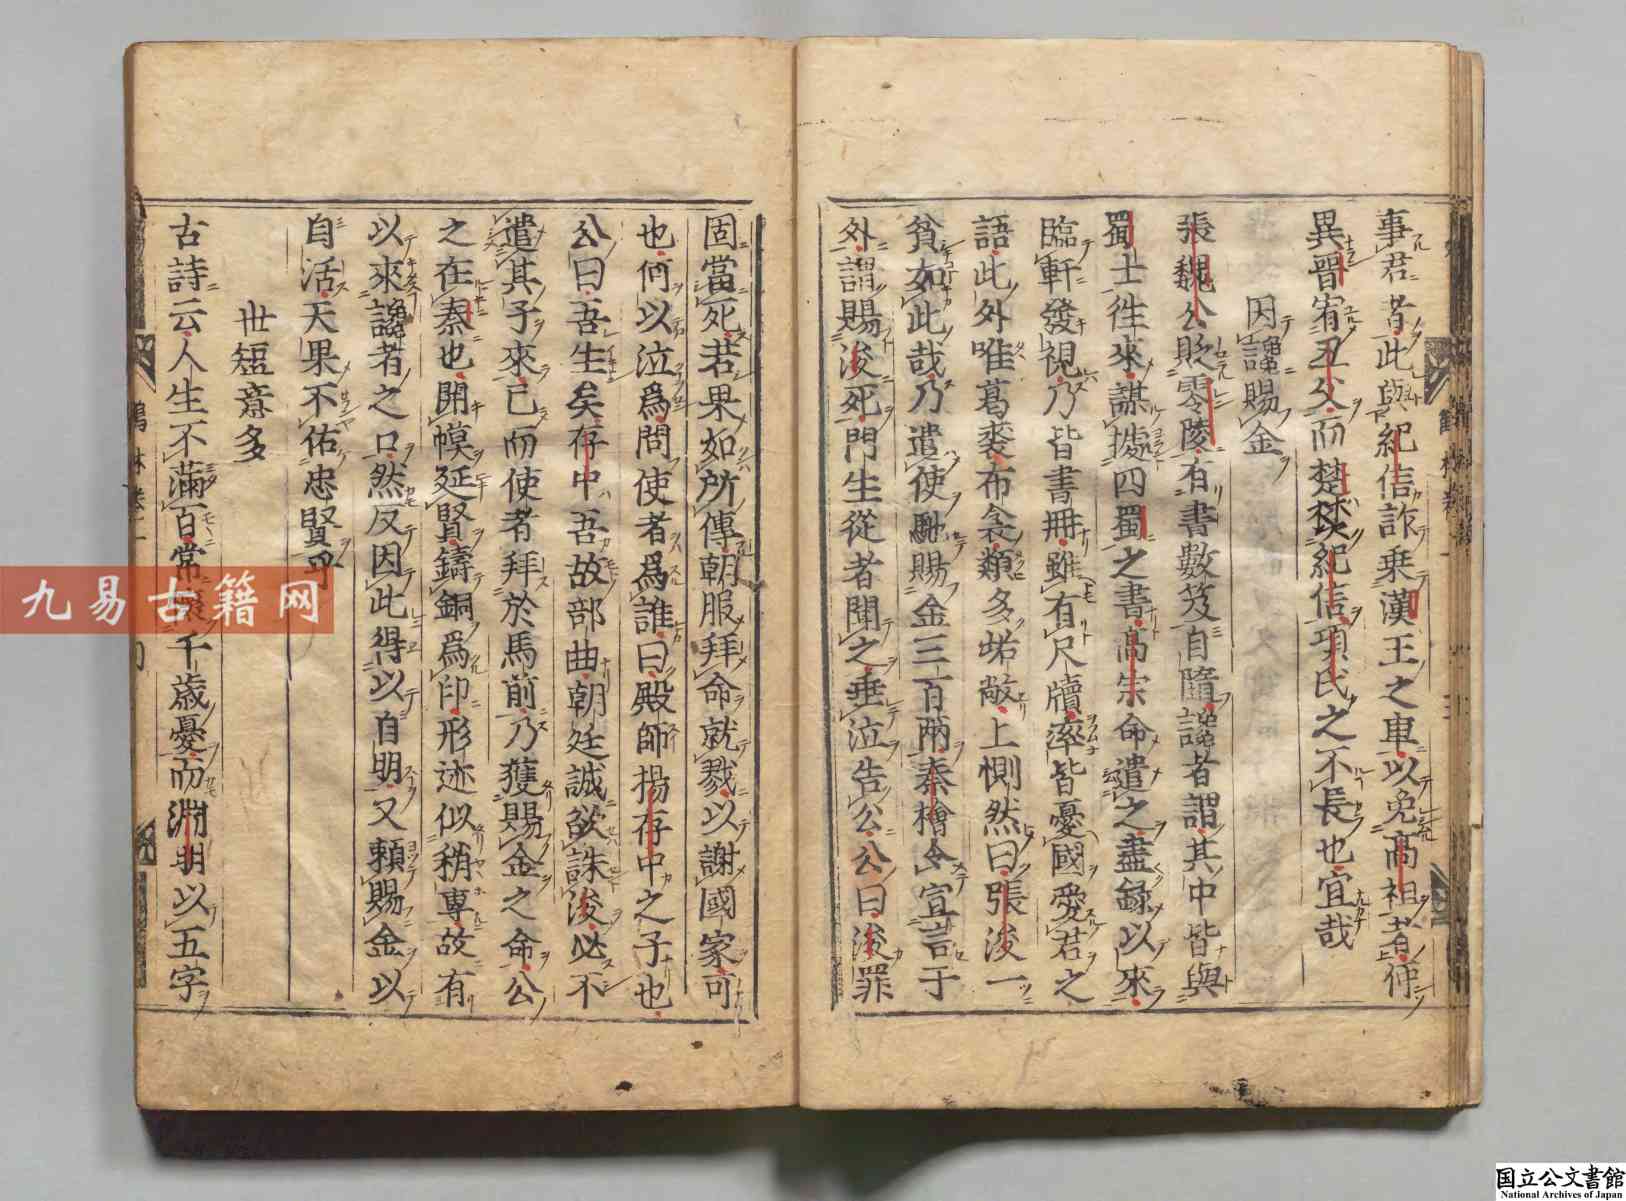 事君者此與紀信詐乗漢王之車以免髙祖者何
異晉宥丑父而楚燓紀信項氏之不長也宜哉
因讒賜金
張魏公貶零陵有書數笈自隨讒者謂其中皆與
蜀士往來謀據四蜀之書髙宗命遣之盡録以來
臨軒發視乃皆書冊雖有尺牘率皆憂國愛君之
語此外唯葛裘布衾類多垢敝上惻然曰張浚一
貧如此哉乃遣使馳賜金三百兩秦檜令宣言于
外謂賜浚死門生從者聞之垂泣告公公曰浚罪
固當死若果如所傳朝服拜命就戮以謝國家可
也何以泣爲問使者爲誰曰殿師揚存中之子也
公曰吾生矣存中吾故部曲朝廷誠欲誅浚必不
遣其子來已而使者拜於馬前乃獲賜金之命公
之在秦也開幙延賢鑄銅爲印形迹似稍専故有
以來讒者之口然反因此得以自明又頼賜金以
自活天果不佑忠賢乎
世短意多
古詩云人生不滿百常懷千歳憂而淵明以五字
九易古籍网
国立公文書館
National Archives of Japan